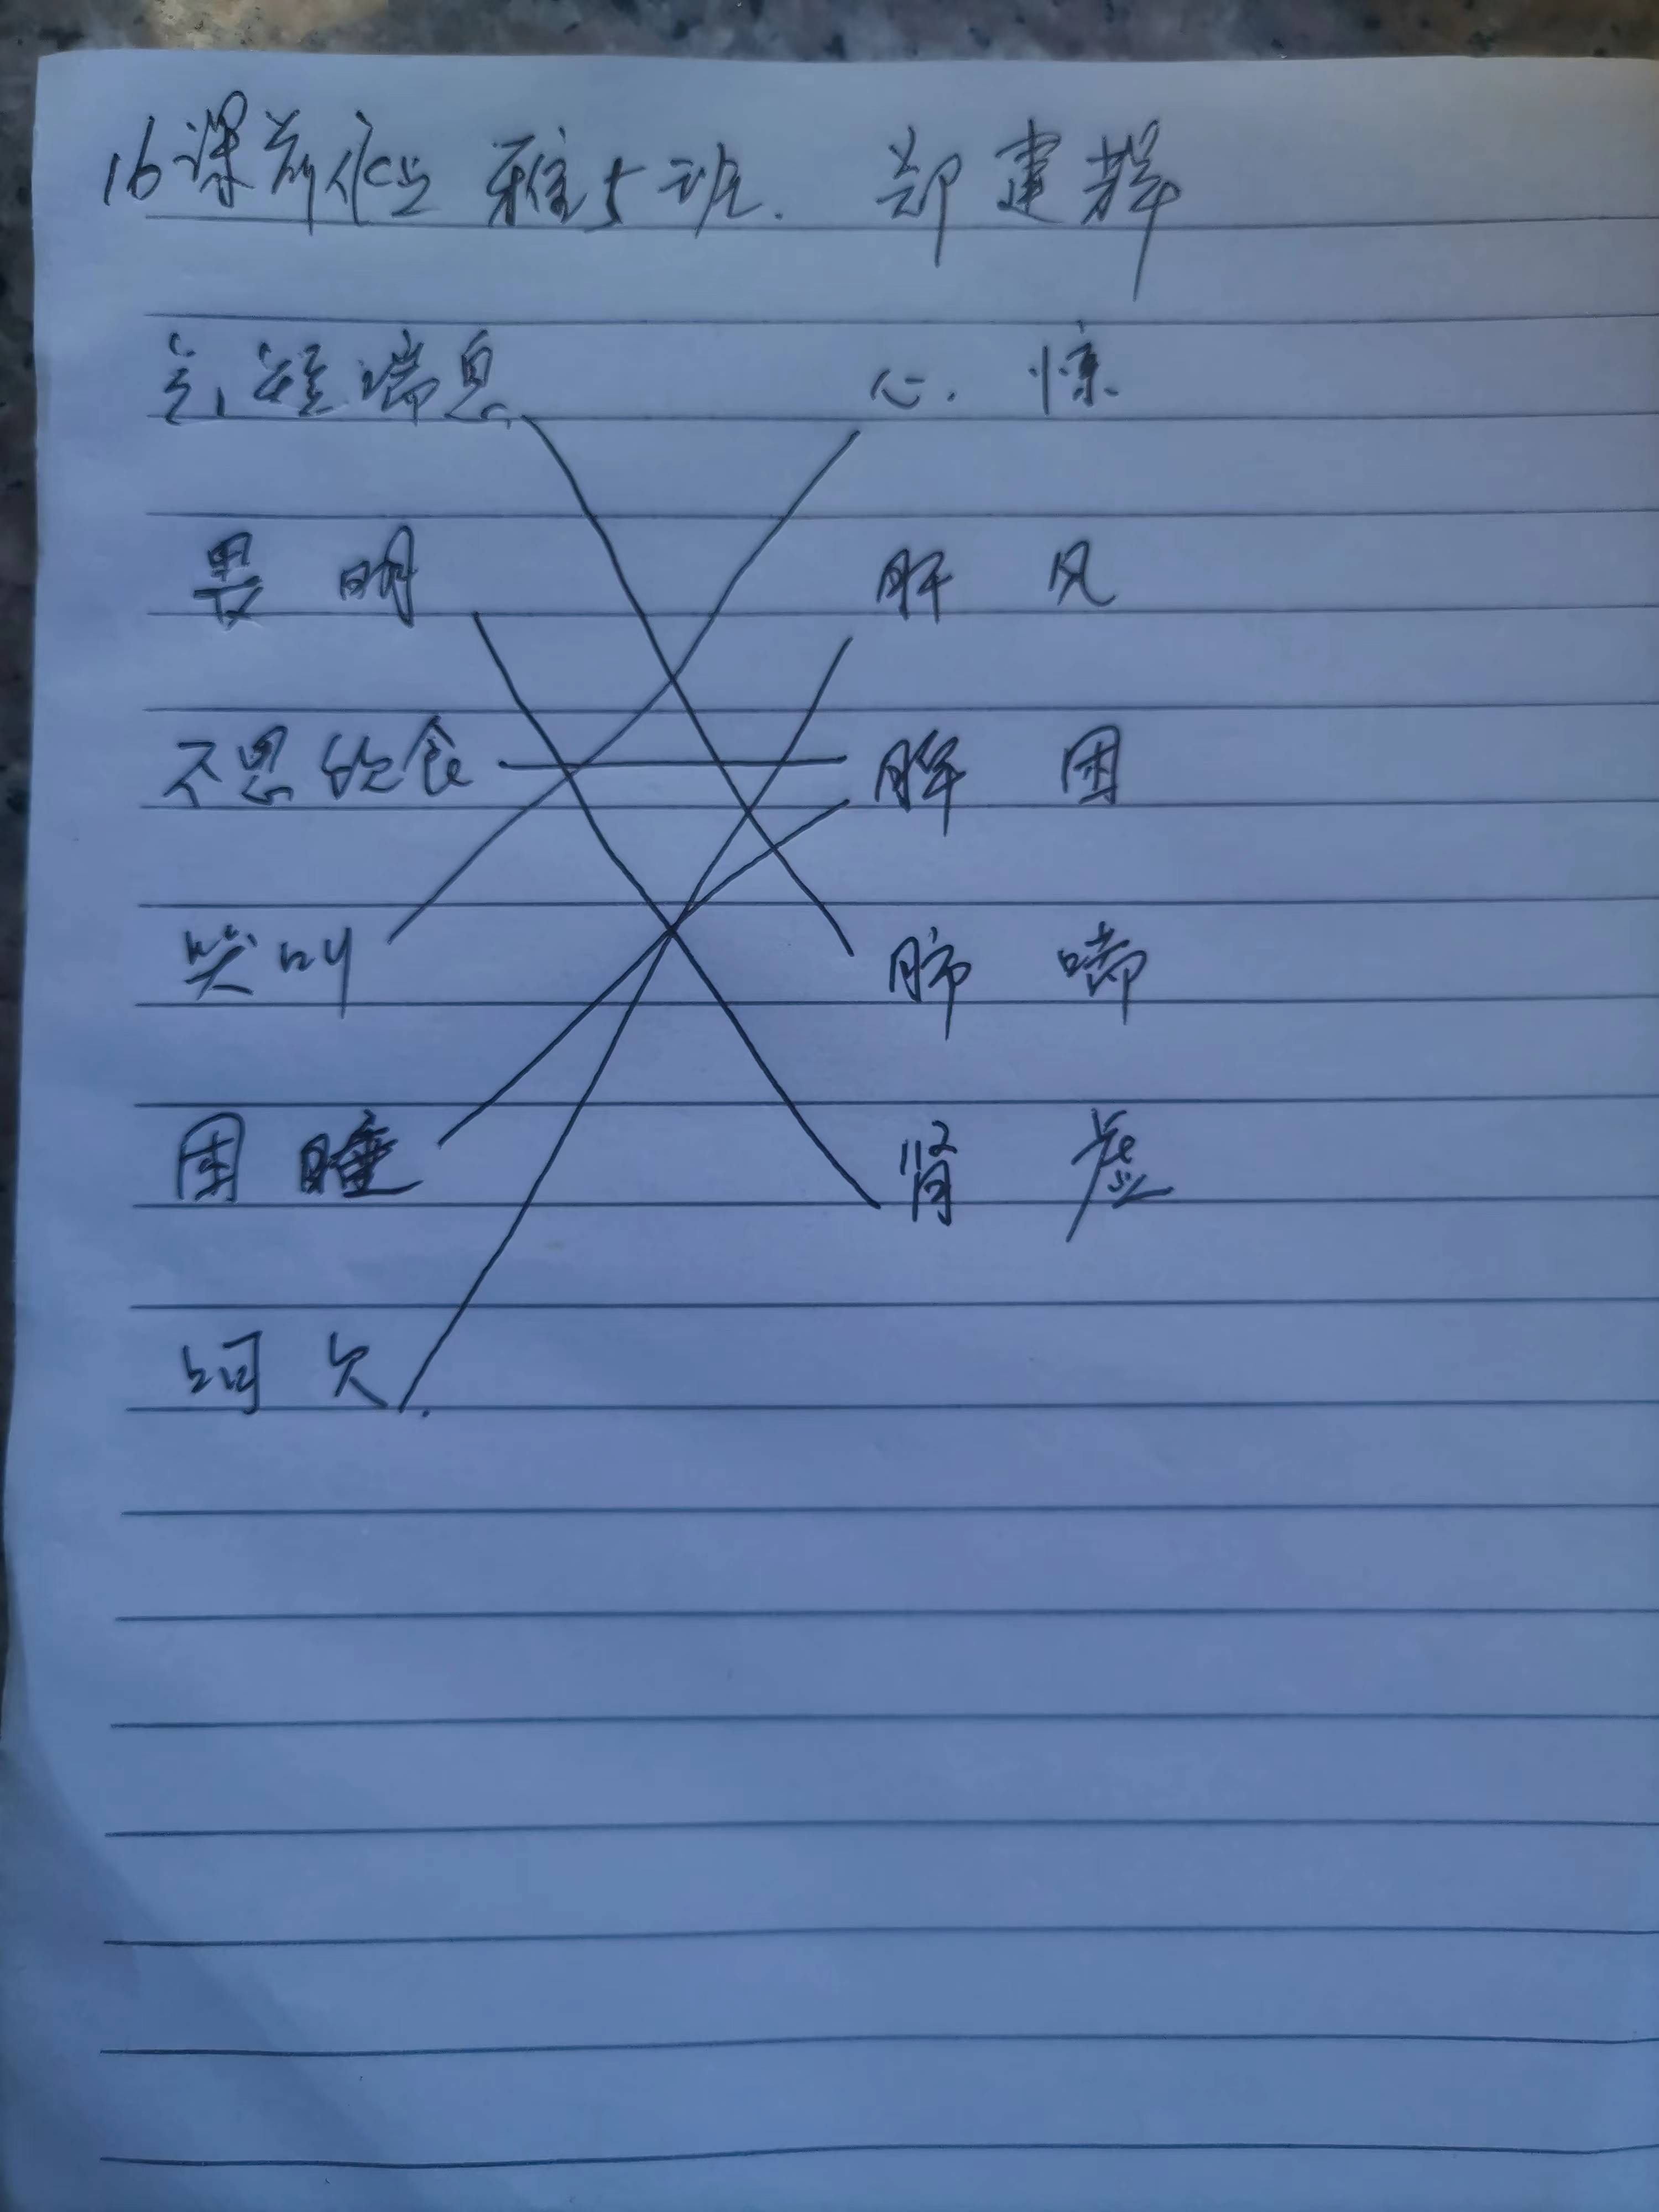 16课前作业 雅5班. 郑建辉
气短喘息 心.惊
畏明 肝风
不思饮食 脾困
哭叫 肺喘
困睡 肾虚
呵欠.